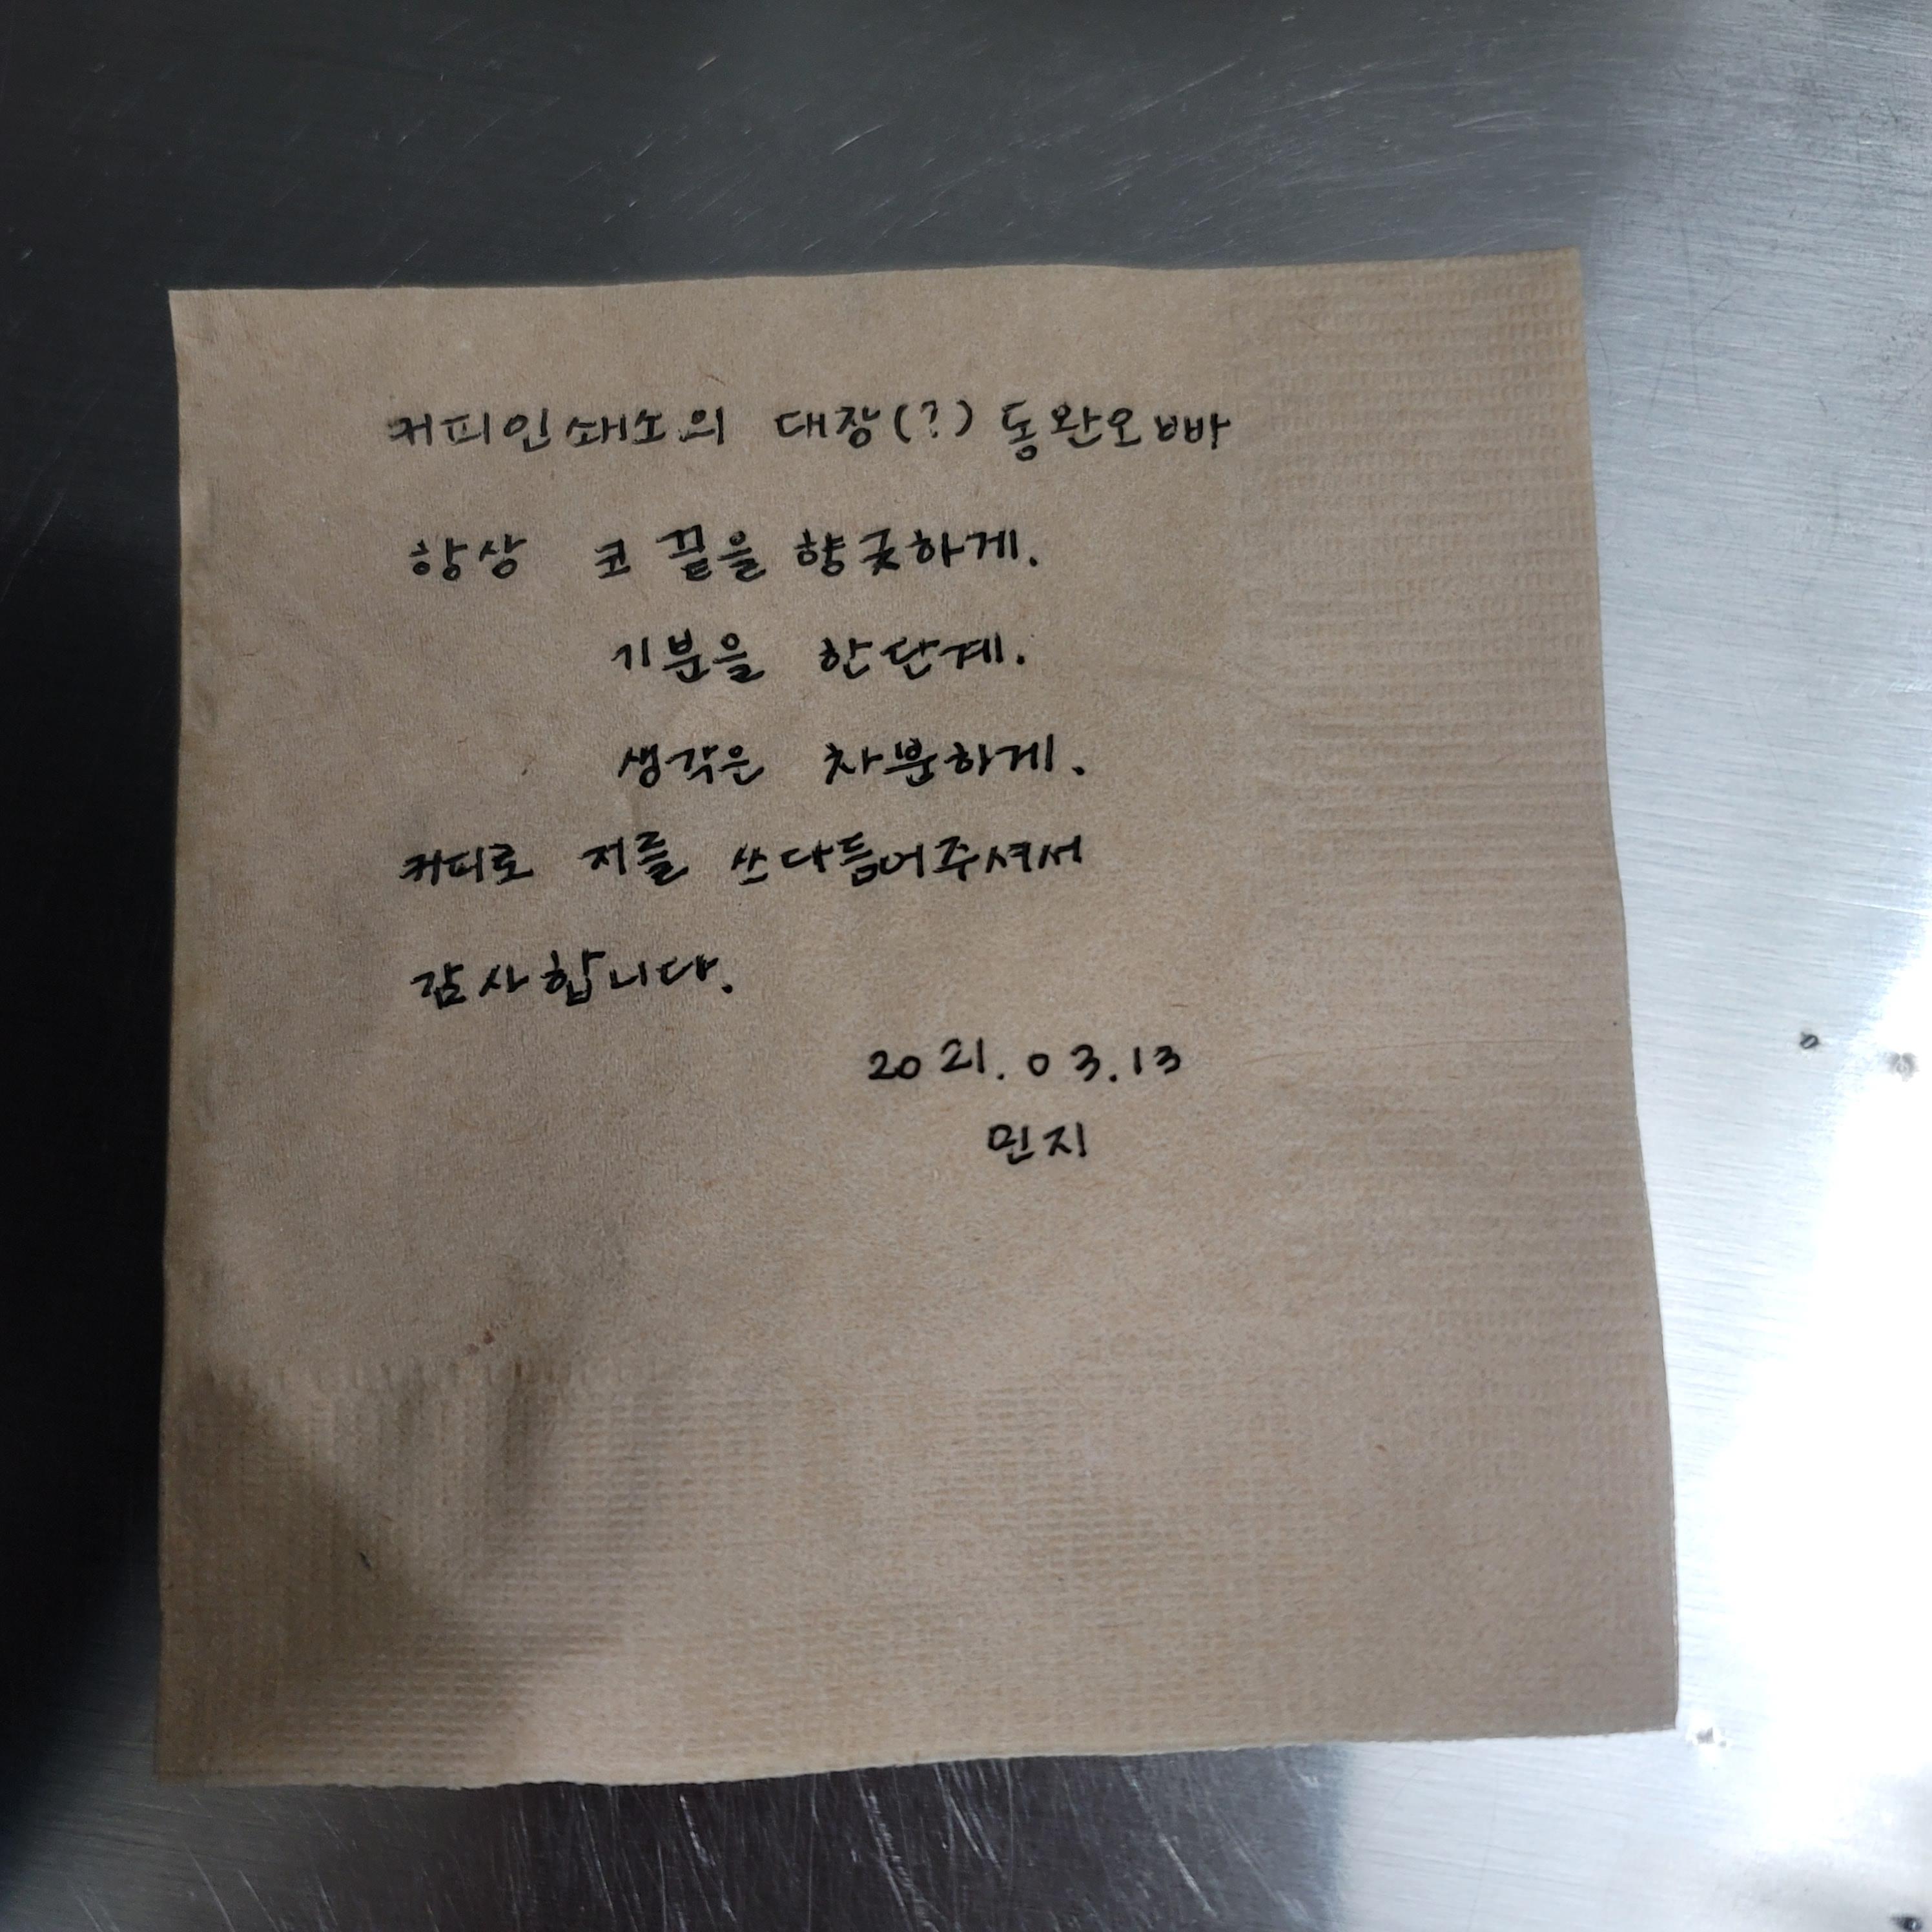 커피인쇄소의 대장(?) 동완오빠
항상 코 끝을 향긋하게.
기분을 한단계.
생각은 차분하게.
커피로 저를 쓰다듬어주셔서
감사합니다.
2021.03.13
민지